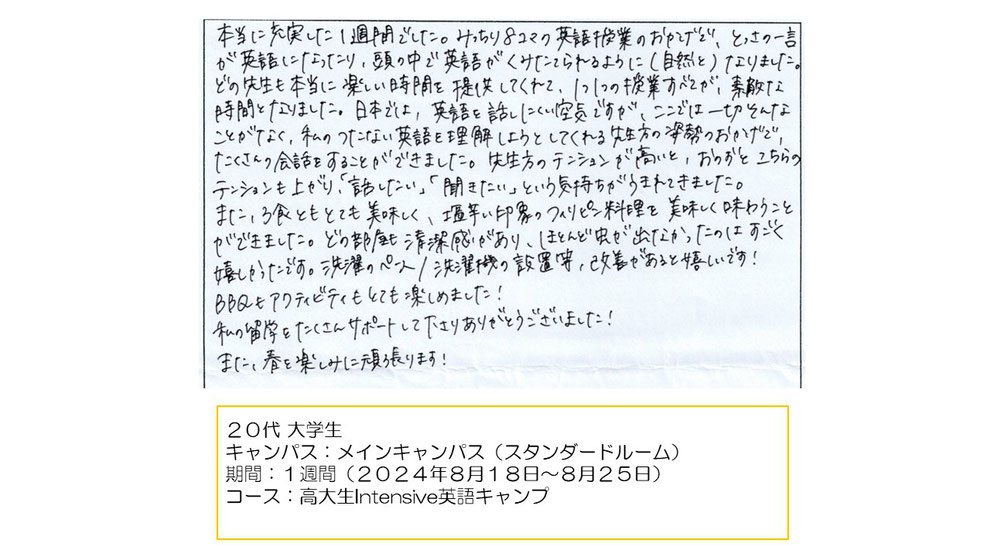 本当に充実した1週間でした。みっちり8コマの英語授業のおかげで、とっさの一言
が英語になったり、頭の中で英語がくみたてられるように(自然と)なりました。
どの先生も本当に楽しい時間を提供してくれて、1つ1つの授業すべてが、素敵な
時間となりました。日本では、英語を話しにくい空気ですが、ここでは一切そんな
ことがなく、私のつたない英語を理解しようとしてくれる先生方の姿勢のおかげで、
たくさんの会話をすることができました。先生方のテンションが高いと、おのずとこちらの
テンションも上がり、「話したい」「聞きたい」という気持ちがうまれてきました。
また、3食ともとても美味しく、塩辛い印象のフィリピン料理を美味しく味わうこと
ができました。どの部屋も清潔感があり、ほとんど虫が出なかったのはすごく
嬉しかったです。洗濯のペース/洗濯機の設置等、改善があると嬉しいです!
BBQもアクティビティもとても楽しめました!
私の留学をたくさんサポートして下さりありがとうございました!
また、春を楽しみに頑張ります!
20代 大学生
キャンパス:メインキャンパス(スタンダードルーム)
期間:1週間(2024年8月18日~8月25日)
コース:高大生Intensive英語キャンプ